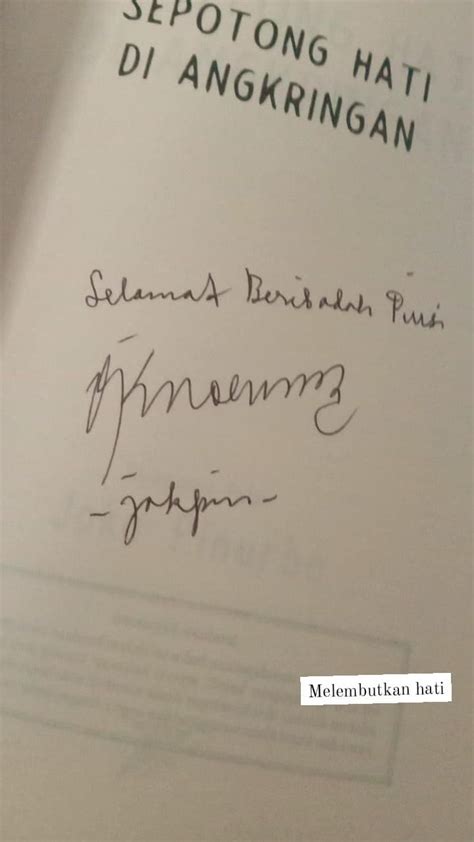 SEPOTONG HATI
DI ANGKRINGAN
Selamat Beribadah Puisi
-jokpin-
Melembutkan hati